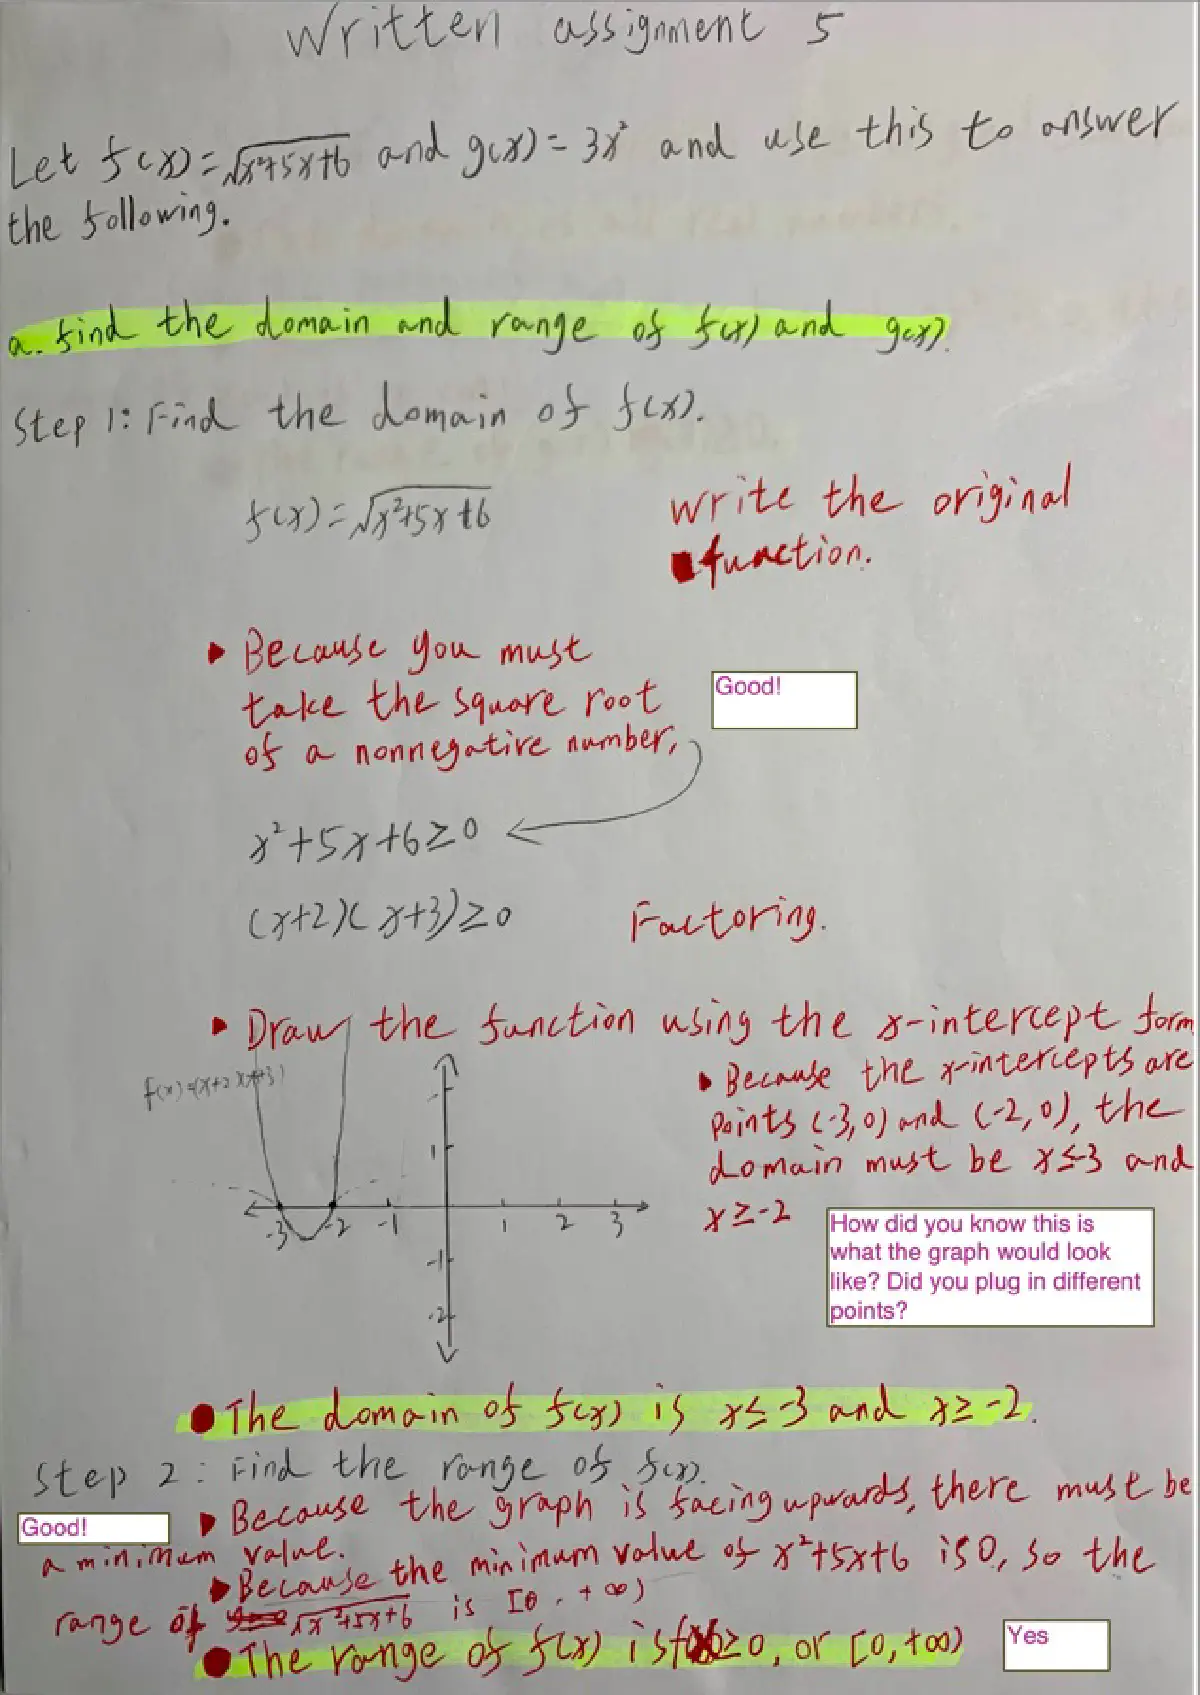 Written assignment 5
Let f(x)=√x²+5x+6 and g(x)=3x² and use this to answer
the following.
a. find the domain and range of f(x) and g(x).
Step 1: Find the domain of f(x).
f(x)=√x²+5x+6
Write the original
function.
Because you must
take the square root
of a nonnegative number,
Good!
x²+5x+6≥0
(x+2)(x+3)≥0
Factoring.
Draw the function using the x-intercept form
f(x)=(x+2)(x+3)
Because the x-intercepts are
points (-3,0) and (-2,0), the
domain must be x≤-3 and
x≥-2
1
-3 -2 -1 1 2 3
-1
-2
How did you know this is
what the graph would look
like? Did you plug in different
points?
The domain of f(x) is x≤-3 and x≥-2.
Step 2: Find the range of f(x).
Because the graph is facing upwards, there must be
Good!
a minimum value.
Because the minimum value of x²+5x+6 is 0, so the
range of √x²+5x+6 is [0, +∞)
The range of f(x) is f(x)≥0, or [0,+∞)
Yes